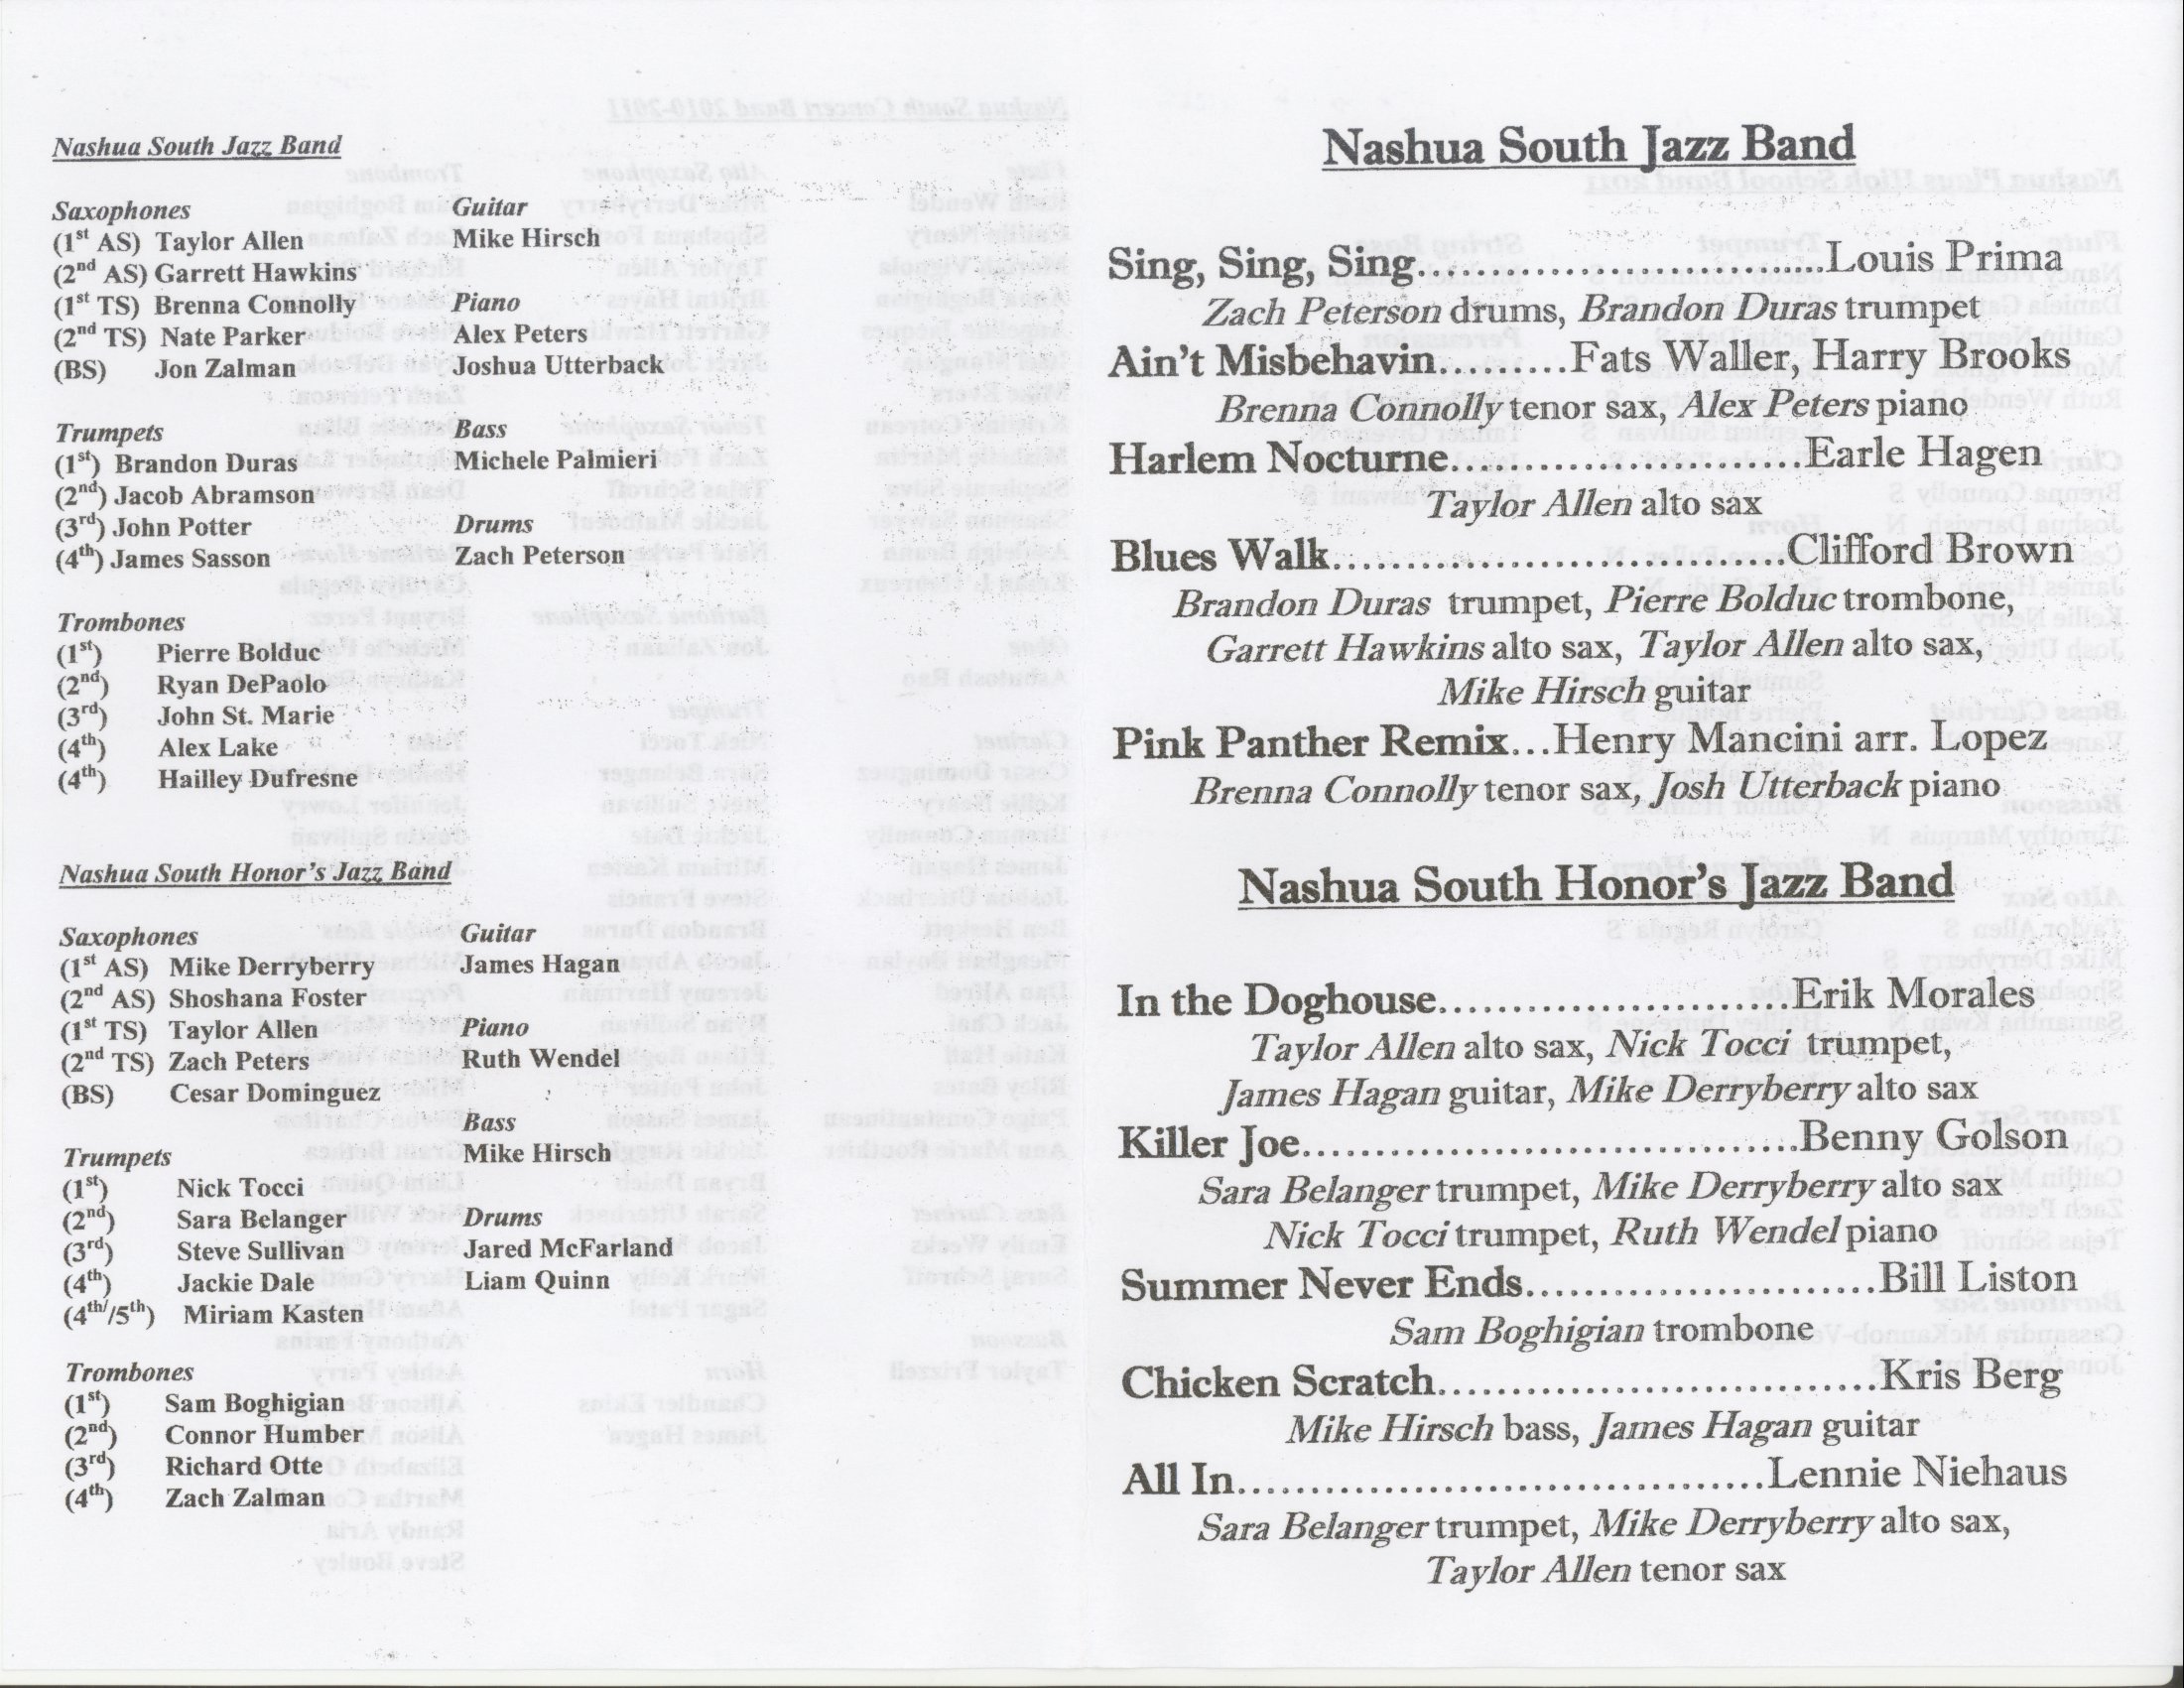 Nashua South Jazz Band
Saxophones
(1st AS) Taylor Allen
(2nd AS) Garrett Hawkins
(1st TS) Brenna Connolly
(2nd TS) Nate Parker
(BS) Jon Zalman
Trumpets
(1st) Brandon Duras
(2nd) Jacob Abramson
(3rd) John Potter
(4th) James Sasson
Trombones
(1st) Pierre Bolduc
(2nd) Ryan DePaolo
(3rd) John St. Marie
(4th) Alex Lake
(4th) Hailley Dufresne
Guitar
Mike Hirsch
Piano
Alex Peters
Joshua Utterback
Bass
Michele Palmieri
Drums
Zach Peterson
Nashua South Honor's Jazz Band
Saxophones
(1st AS) Mike Derryberry
(2nd AS) Shoshana Foster
(1st TS) Taylor Allen
(2nd TS) Zach Peters
(BS) Cesar Dominguez
Trumpets
(1st) Nick Tocci
(2nd) Sara Belanger
(3rd) Steve Sullivan
(4th) Jackie Dale
(4th/5th) Miriam Kasten
Trombones
(1st) Sam Boghigian
(2nd) Connor Humber
(3rd) Richard Otte
(4th) Zach Zalman
Guitar
James Hagan
Piano
Ruth Wendel
Bass
Mike Hirsch
Drums
Jared McFarland
Liam Quinn
Nashua South Jazz Band
Sing, Sing, Sing..............................Louis Prima
Zach Peterson drums, Brandon Duras trumpet
Ain't Misbehavin..........Fats Waller, Harry Brooks
Brenna Connolly tenor sax, Alex Peters piano
Harlem Nocturne..........................Earle Hagen
Taylor Allen alto sax
Blues Walk.................................Clifford Brown
Brandon Duras trumpet, Pierre Bolduc trombone,
Garrett Hawkins alto sax, Taylor Allen alto sax,
Mike Hirsch guitar
Pink Panther Remix...Henry Mancini arr. Lopez
Brenna Connolly tenor sax, Josh Utterback piano
Nashua South Honor's Jazz Band
In the Doghouse..........................Erik Morales
Taylor Allen alto sax, Nick Tocci trumpet,
James Hagan guitar, Mike Derryberry alto sax
Killer Joe....................................Benny Golson
Sara Belanger trumpet, Mike Derryberry alto sax
Nick Tocci trumpet, Ruth Wendel piano
Summer Never Ends..........................Bill Liston
Sam Boghigian trombone
Chicken Scratch................................Kris Berg
Mike Hirsch bass, James Hagan guitar
All In.......................................Lennie Niehaus
Sara Belanger trumpet, Mike Derryberry alto sax,
Taylor Allen tenor sax